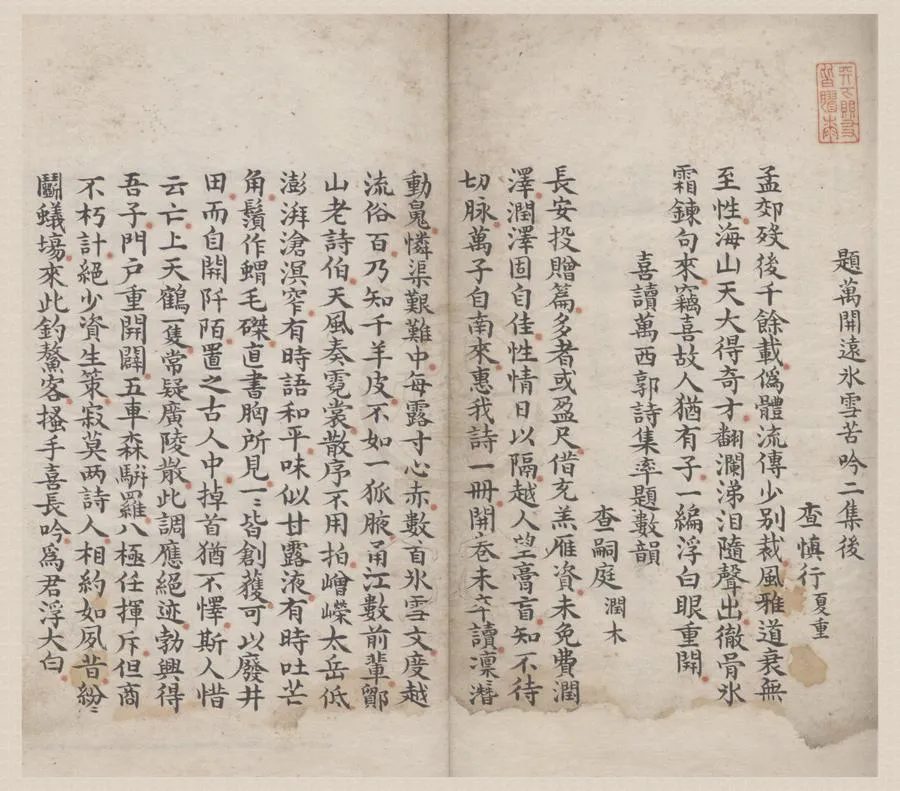 題萬開遠氷雪苦吟二集後
查慎行夏重
孟郊歿後千餘載僞體流傳少别裁風雅道衰無
至性海山天大得奇才翻瀾涕泪隨聲出徹骨氷
霜鍊句來竊喜故人猶有子一編浮白眼重開
喜讀萬西郭詩集率題數韻
查嗣庭潤木
長安投贈篇多者或盈尺借充羔雁資未免費潤
澤潤澤固自佳性情日以隔越人望膏盲知不待
切脉萬子自南來惠我詩一冊開卷未卒讀凛潛
動鬼憐渠艱難中每露寸心赤數百氷雪文度越
流俗百乃知千羊皮不如一狐腋甬江數前輩鄮
山老詩伯天風奏霓裳散序不用拍嶒嶸太岳低
澎湃滄溟窄有時語和平味似甘露液有時吐芒
角鬚作蝟毛磔直書胸所見一〻皆創獲可以廢井
田而自開阡陌置之古人中掉首猶不懌斯人惜
云亡上天鶴一隻常疑廣陵散此調應絕迹勃興得
吾子門户重開闢五車森駢羅八極任揮斥但商
不朽計絕少資生策寂莫两詩人相約如夙昔紛〻
鬭蟻場來此釣鰲客搔手喜長吟爲君浮大白